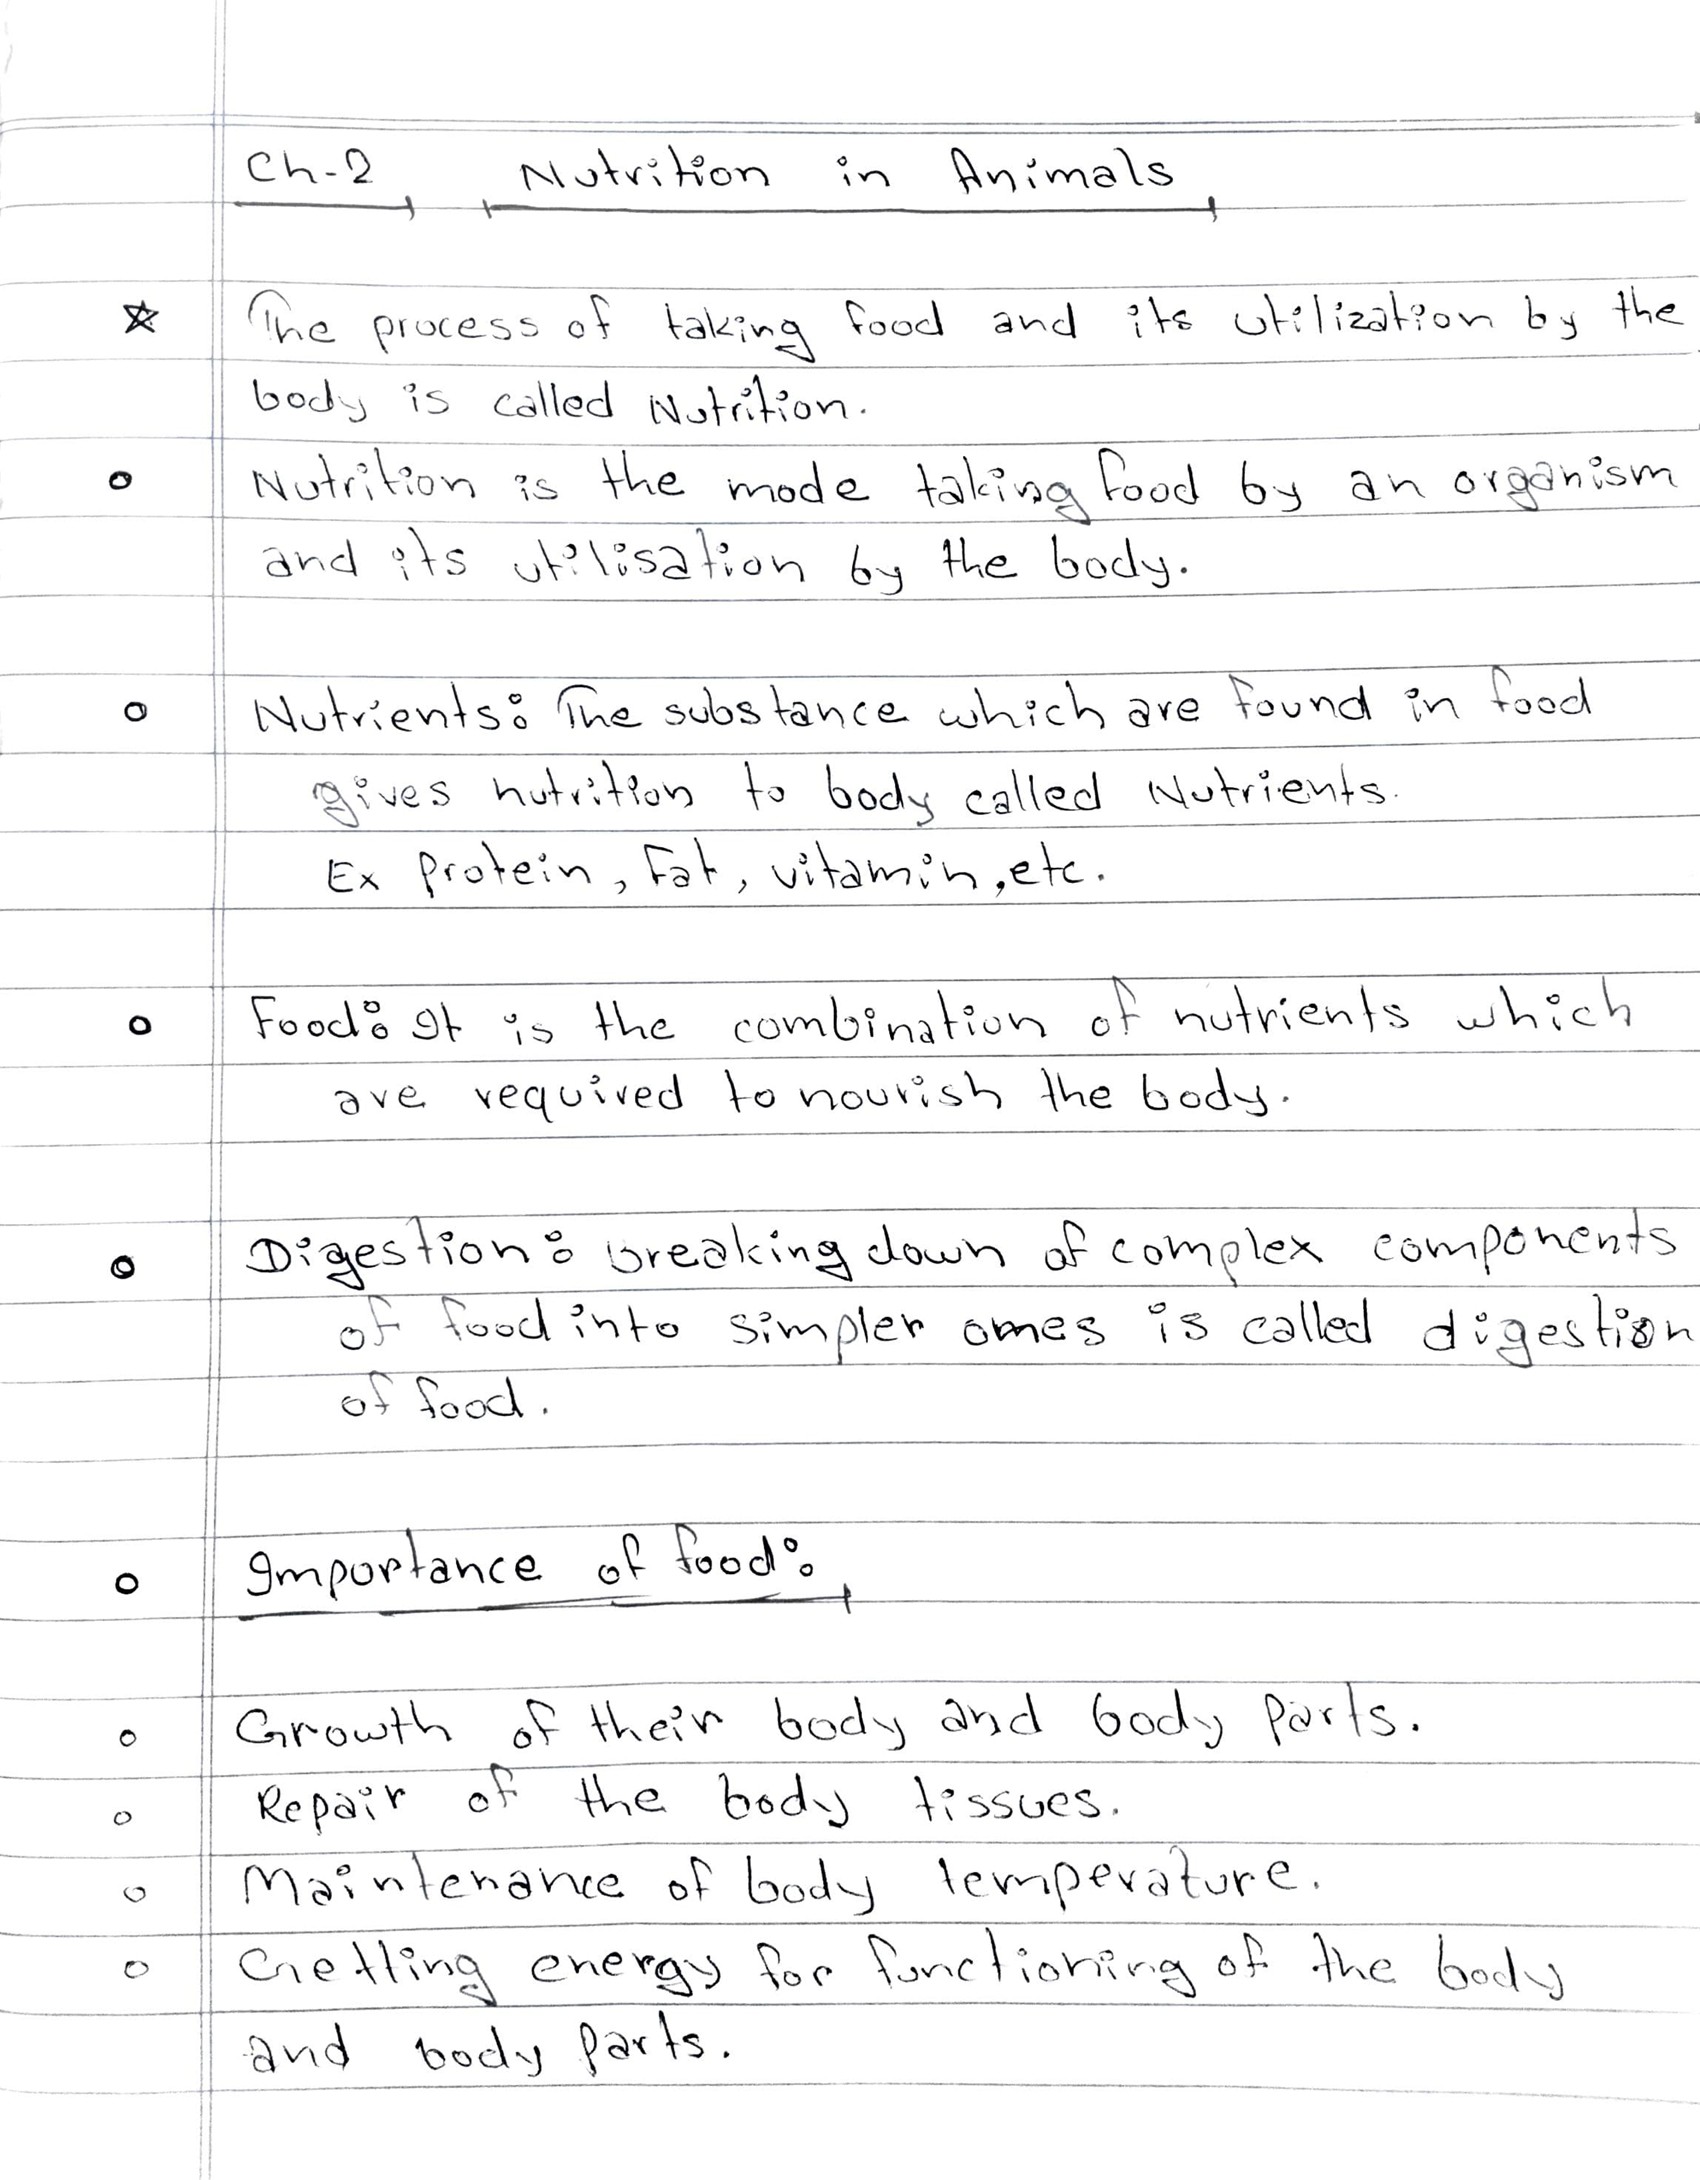 Ch-2 Nutrition in Animals
☆ The process of taking food and its utilization by the
body is called Nutrition.
o Nutrition is the mode taking food by an organism
and its utilisation by the body.
o Nutrients: The substance which are found in food
gives nutrition to body called Nutrients.
Ex Protein, Fat, vitamin, etc.
o Food: It is the combination of nutrients which
are required to nourish the body.
o Digestion: breaking down of complex components
of food into simpler omes is called digestion
of food.
o Importance of food:
o Growth of their body and body parts.
o Repair of the body tissues.
o Maintenance of body temperature.
o Getting energy for functioning of the body
and body parts.